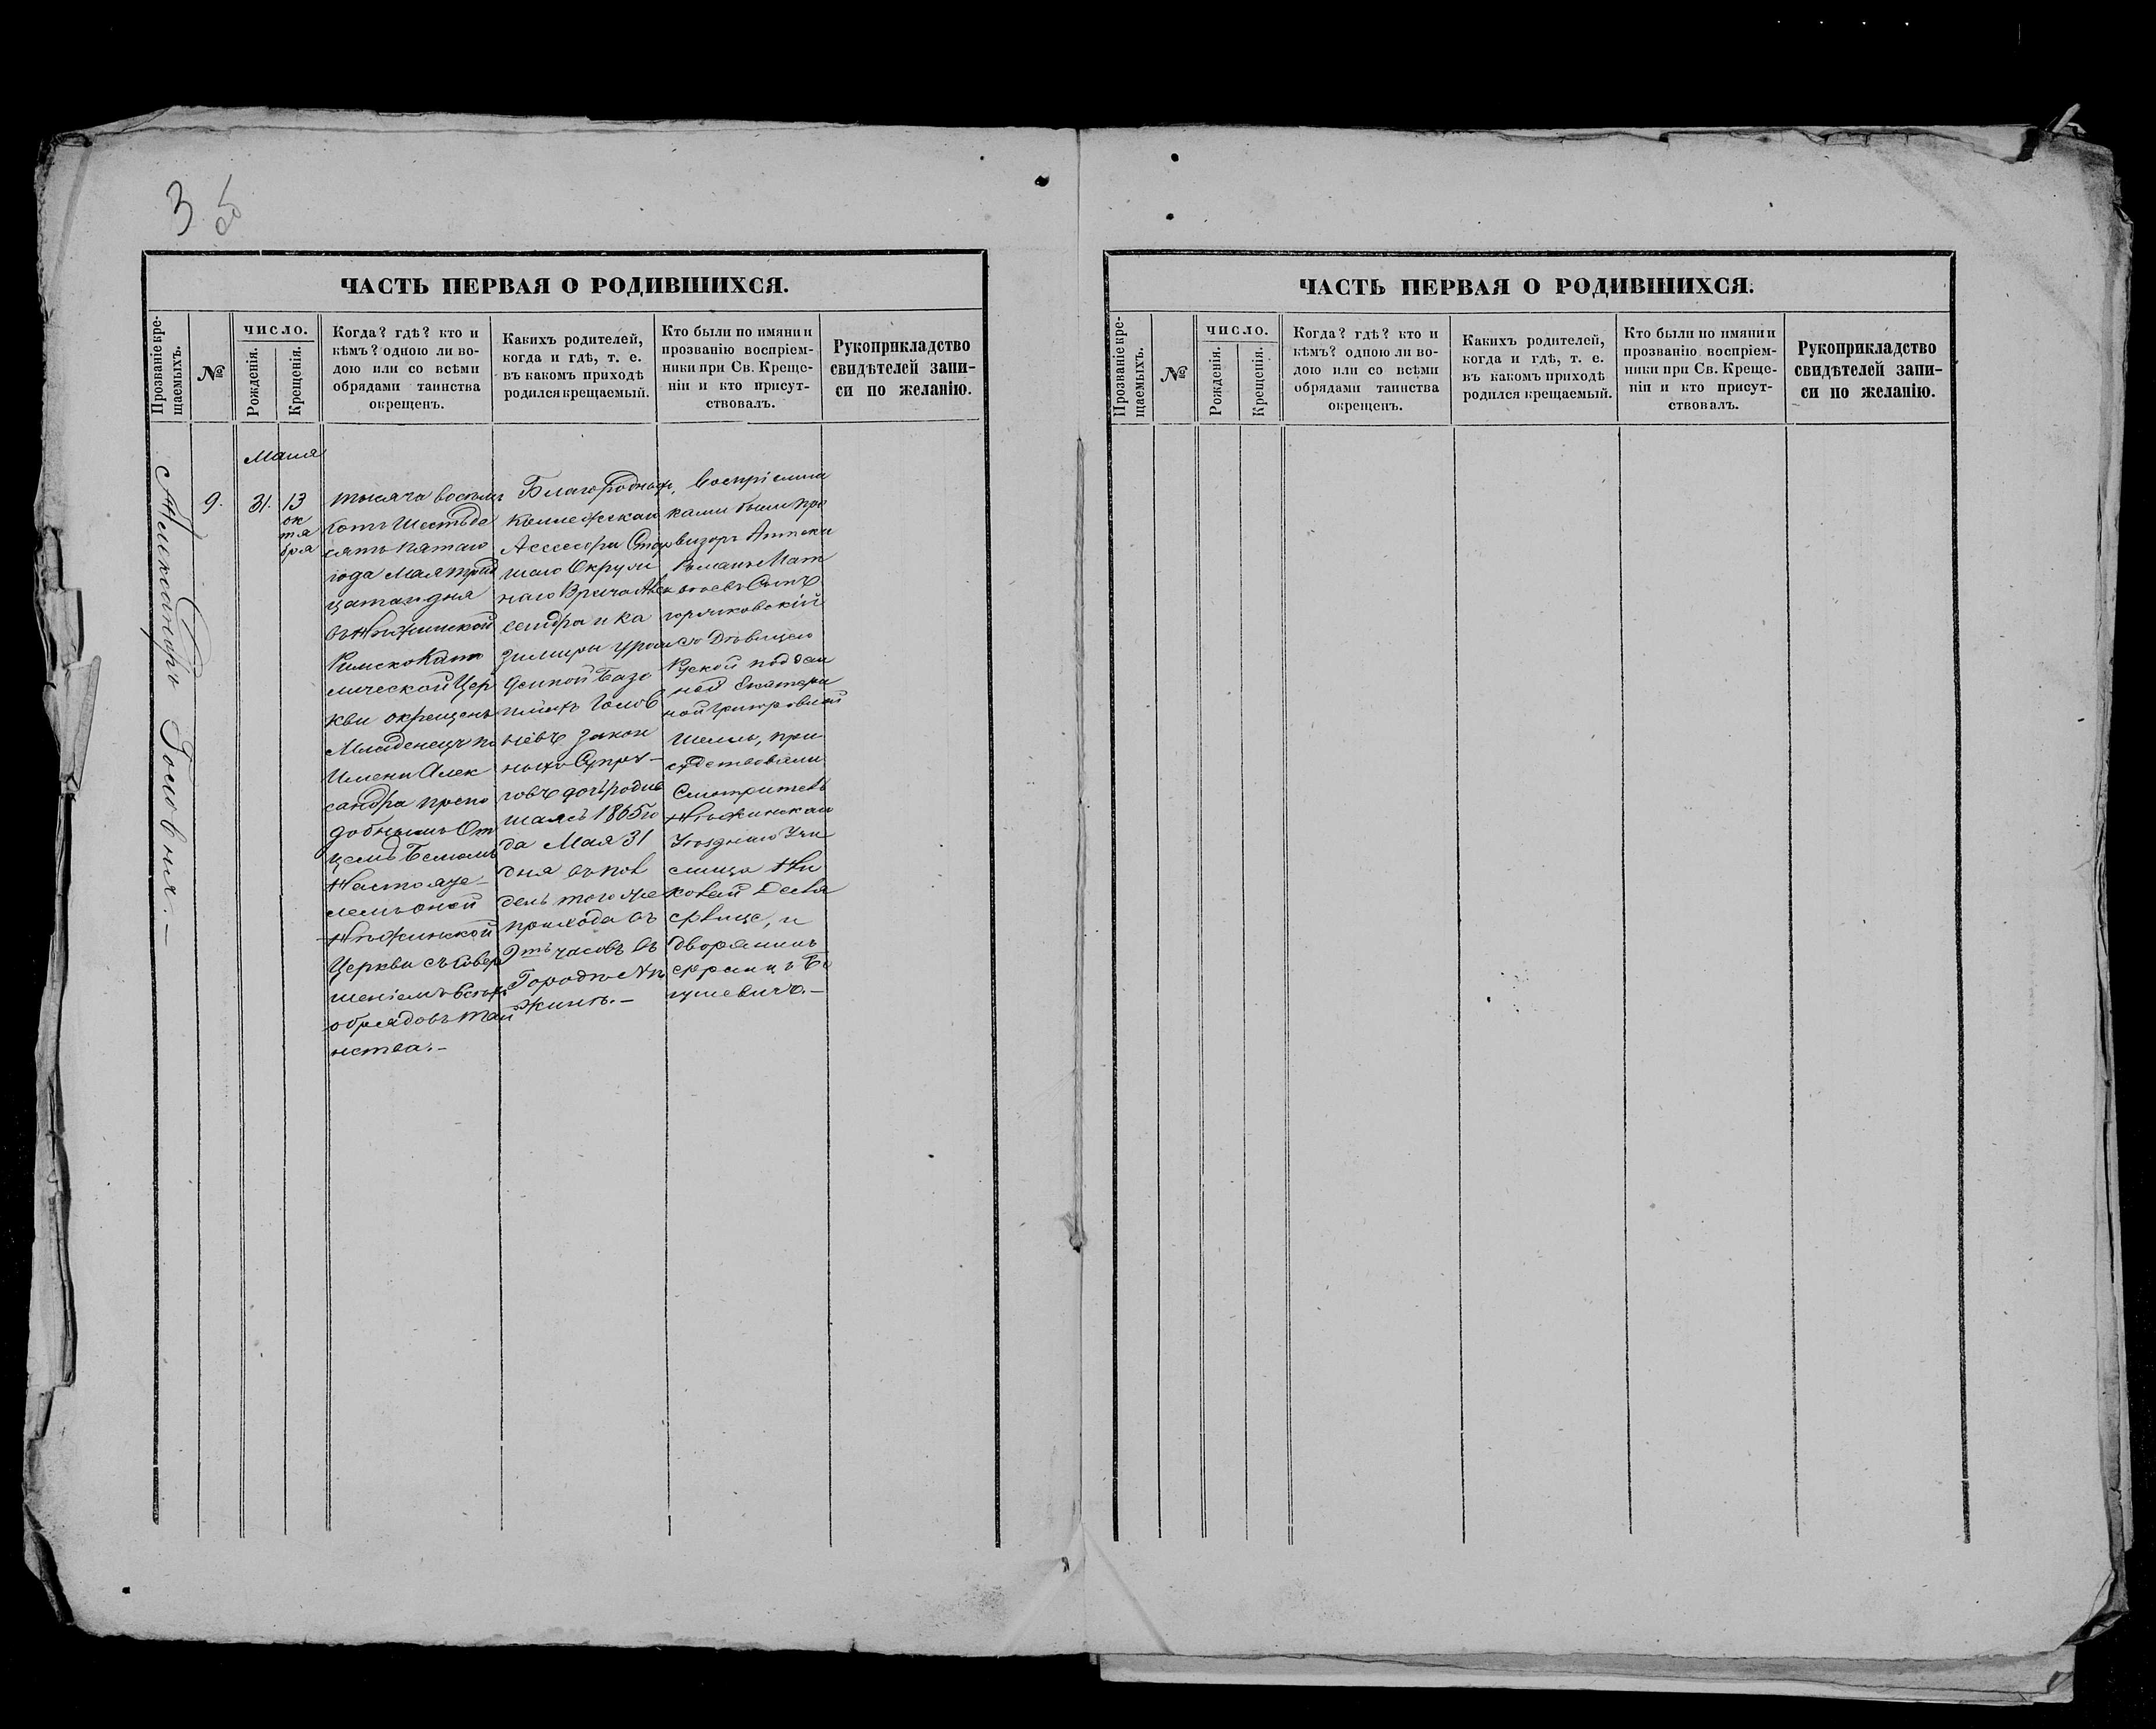 3
ЧАСТЬ ПЕРВАЯ О РОДИВШИХСЯ.
Прозваніе кре-
щаемыхъ.
№
число.
Рожденія.
Крещенія.
Когда? гдѣ? кто и
кѣмъ? одною ли во-
дою или со всѣми
обрядами таинства
окрещенъ.
Какихъ родителей,
когда и гдѣ, т. е.
въ какомъ приходѣ
родился крещаемый.
Кто были по имяни и
прозванію воспріем-
ники при Св. Креще-
ніи и кто присут-
ствовалъ.
Рукоприкладство
свидѣтелей запи-
си по желанію.
Александръ Головня.–
9.
Маія
31.
13
ок
тя
бря
тысяча восемь
сотъ шестьде
сятъ пятаго
года Мая трид
цатаго дня
въ Нѣжинской
Римско Като
лической Цер
кви окрещенъ
Младенецъ по
Имени Алек
сандра препо
добнымъ От
цемъ
Настояте–
лемъ оной
Нѣжинской
Церкви съ совер
шеніемъ всѣхъ
обрядовъ таи
нства.–
Благородныхъ,
Коллежскаи
Ассесора Стар
шаго Окруж
наго Врача Алек
сандра и Ка
зимиры урож
денной
Голов
невъ закон
ныхъ Супру–
говъ дочь родив
шаясь 1865 го
да Мая 31
дня въ пов
день того же
прихода въ
9ть часовъ въ
Городѣ Нѣ
жинѣ.–
воспріемни
ками были про
визоръ Аптеки
Романъ Мат
вѣевъ Сынъ
горячковскій
съ Дѣвицею
Руской поддан
ной Екатери
ной
при
судствовали
Смотритель
Нѣжинскаго
Уѣзднаго Учи
лища
и
дворянинъ
ЧАСТЬ ПЕРВАЯ О РОДИВШИХСЯ.
Прозваніе кре-
щаемыхъ.
№
число.
Рожденія.
Крещенія.
Когда? гдѣ? кто и
кѣмъ? одною ли во-
дою или со всѣми
обрядами таинства
окрещенъ.
Какихъ родителей,
когда и гдѣ, т. е.
въ какомъ приходѣ
родился крещаемый.
Кто были по имяни и
прозванію воспріем-
ники при Св. Креще-
ніи и кто присут-
ствовалъ.
Рукоприкладство
свидѣтелей запи-
си по желанію.